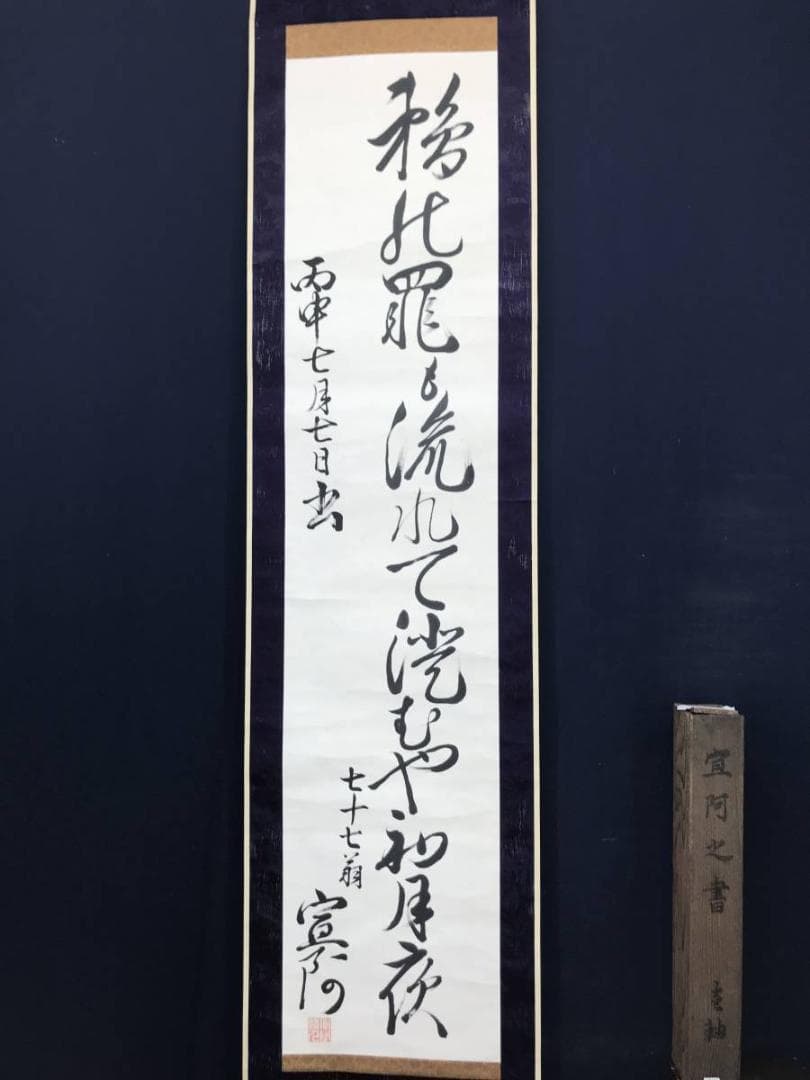 鵜の罪も流れて澄むや初月夜
丙申七月七日書
七十七翁
宜阿
宜阿之書
壱軸